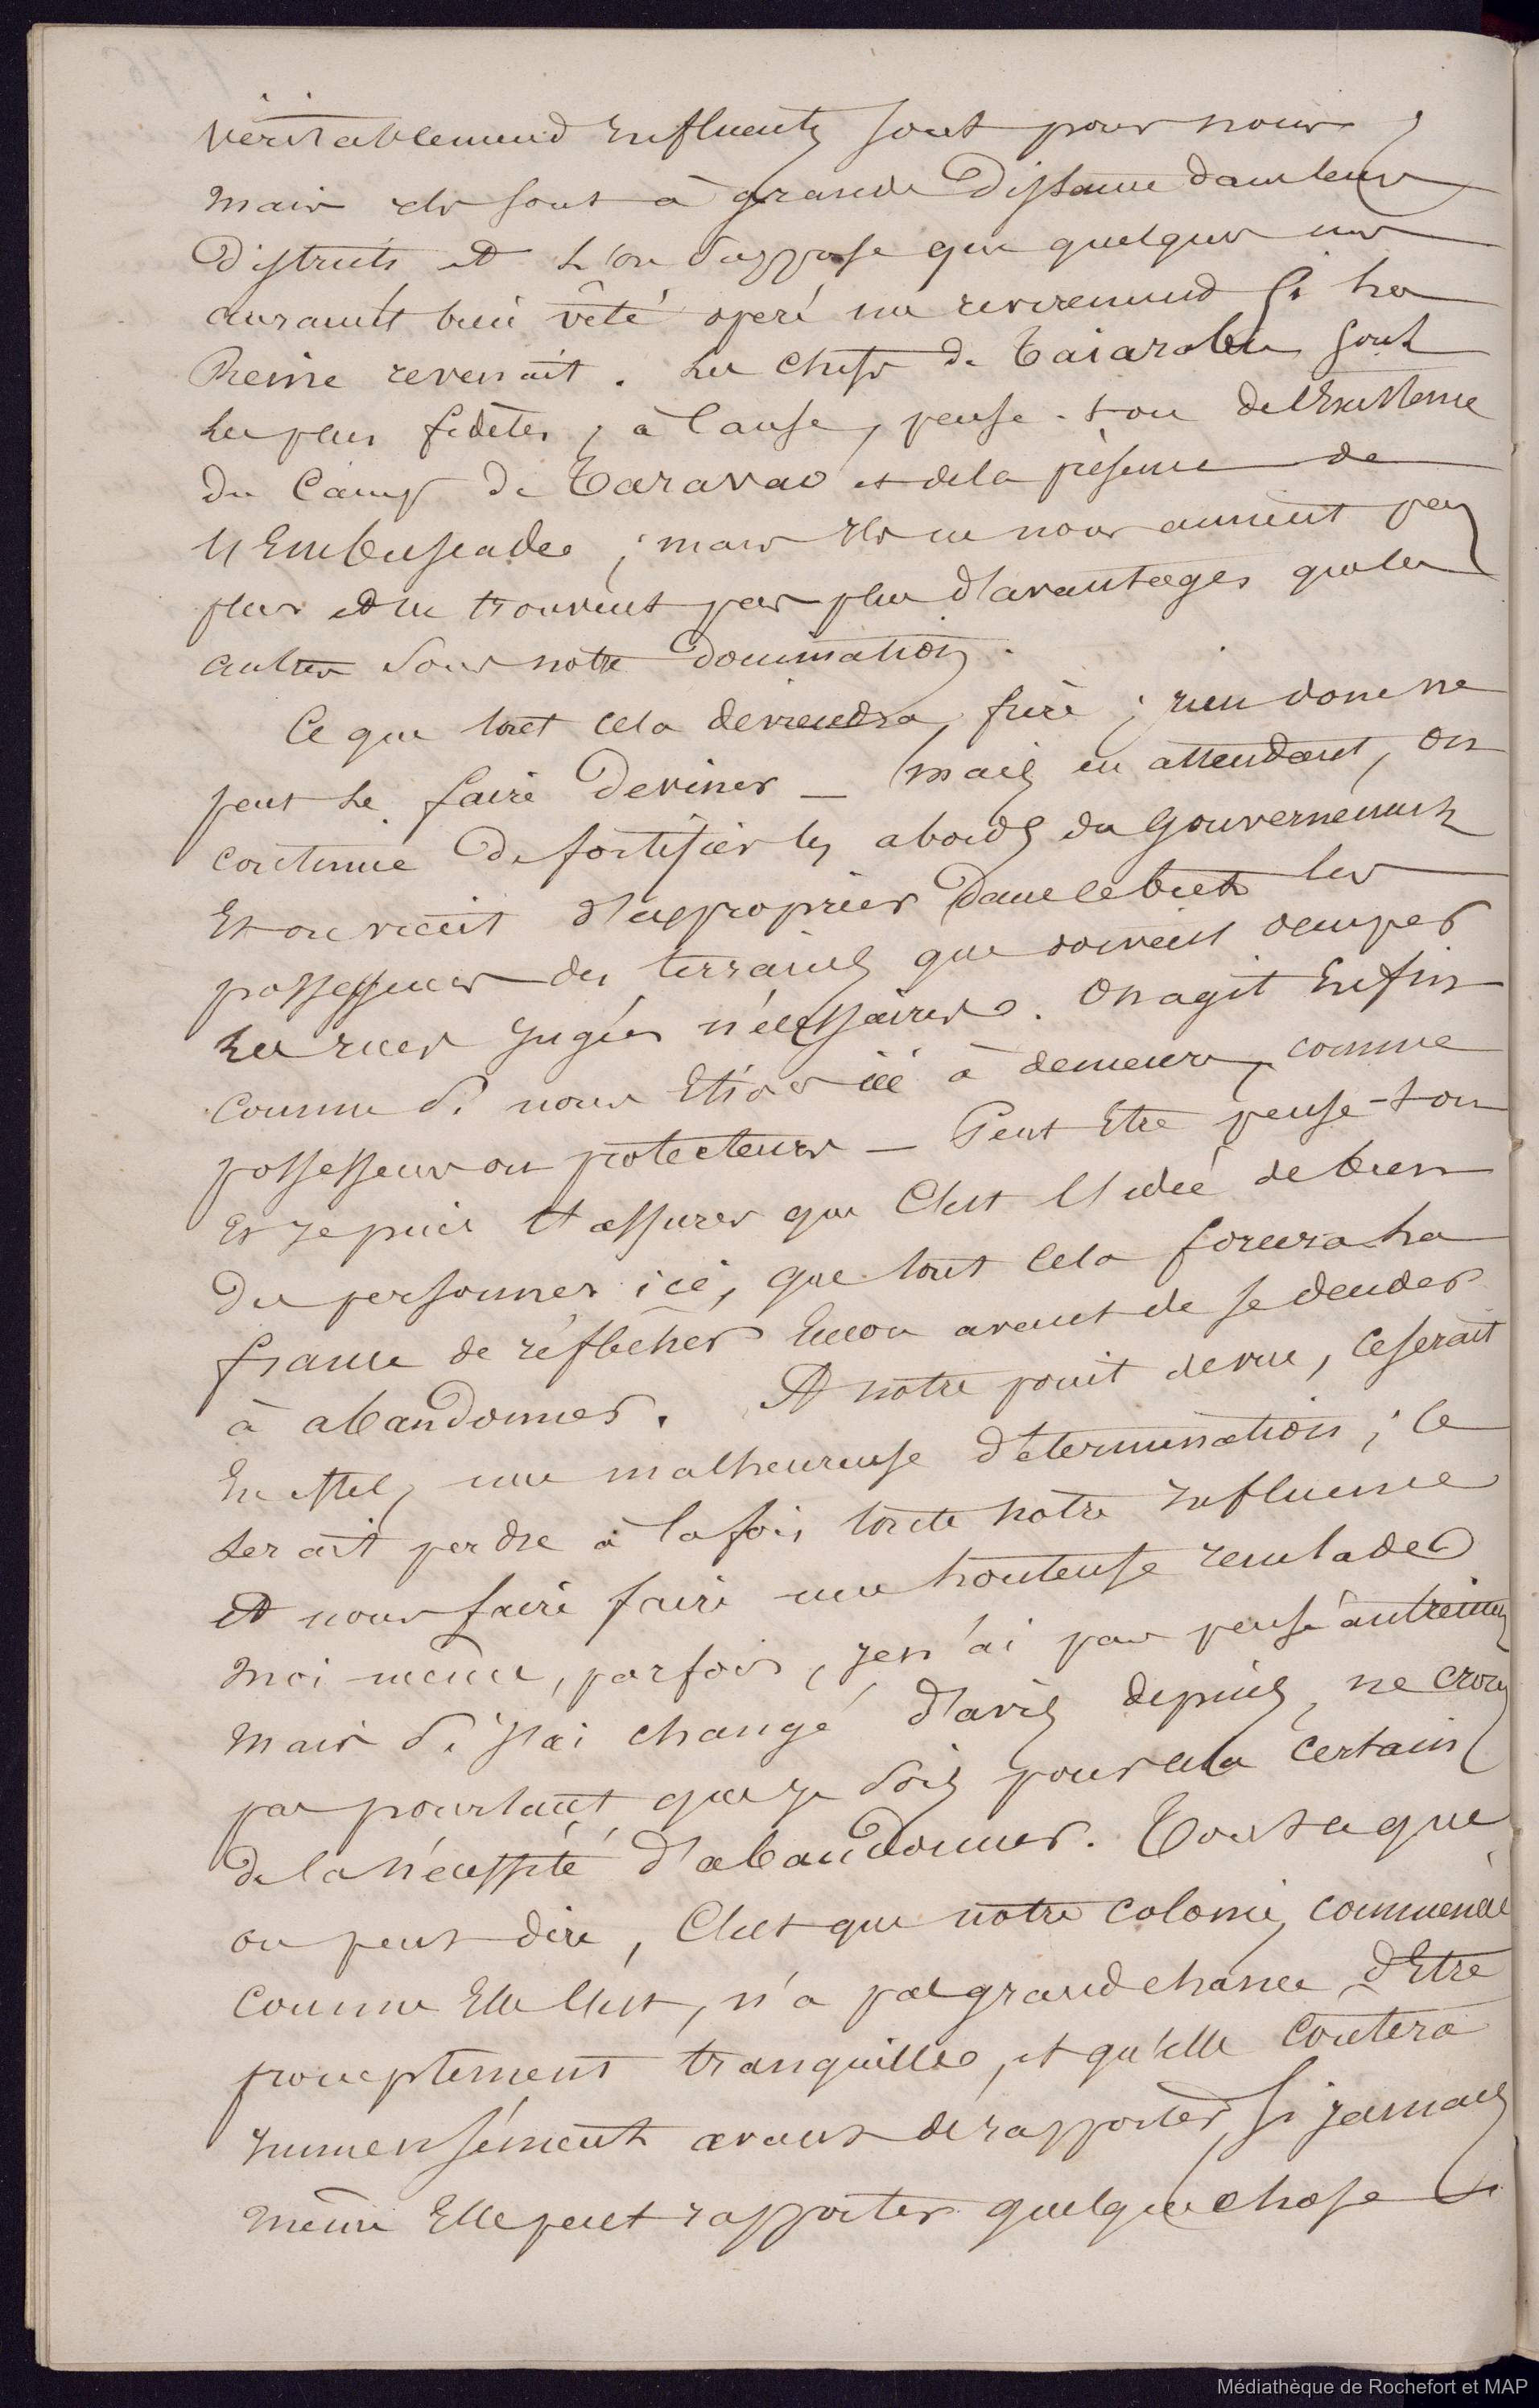 véritablement influents sont pour nous,
mais ils sont à grande distance dans leurs
districts et l'on suppose que quelques uns
auraient bien vite opéré un revirement si la
Reine revenait. Les chefs de Taiarabu sont
les plus fidèles, à cause, pense-t-on de l'existence
du camp de Taravao et de la présence de
l'Embuscade ; mais ils ne nous aiment pas
plus et ne trouvent pas plus d'avantages que les
autres sous notre domination.
Ce que tout cela deviendra, frère ; rien donc ne
peut le faire deviner — mais en attendant, on
continue de fortifier les abords du Gouvernement
Et on vient d'approprier dans ce but les
possesseurs des terrains que doivent occuper
les rues jugées nécessaires. On agit Enfin
comme si nous Etions ici à demeure, comme
possesseurs ou protecteurs — Peut Etre pense-t-on
Et je puis t'assurer que C'est l'idée de bien
des personnes ici, que tout cela forcera la
france de réfléchir Encore avant de se décider
à abandonner. A notre point de vue, ce serait
En effet, une malheureuse détermination ; ce
serait perdre à la fois toute notre influence
et nous faire faire une honteuse reculade
moi même, parfois, je n'ai pas pensé autrement
mais si j'ai changé d'avis depuis, ne crois
pas pourtant que je sois pour cela certain
de la nécessité d'abandonner. Tout ce que
on peut dire, C'est que notre colonie, commencée
comme Elle l'est, n'a pas grand chance d'Etre
promptement tranquille, et qu'elle coutera
immensément avant de rapporter, si jamais
même Elle peut rapporter quelque chose
Médiathèque de Rochefort et MAP